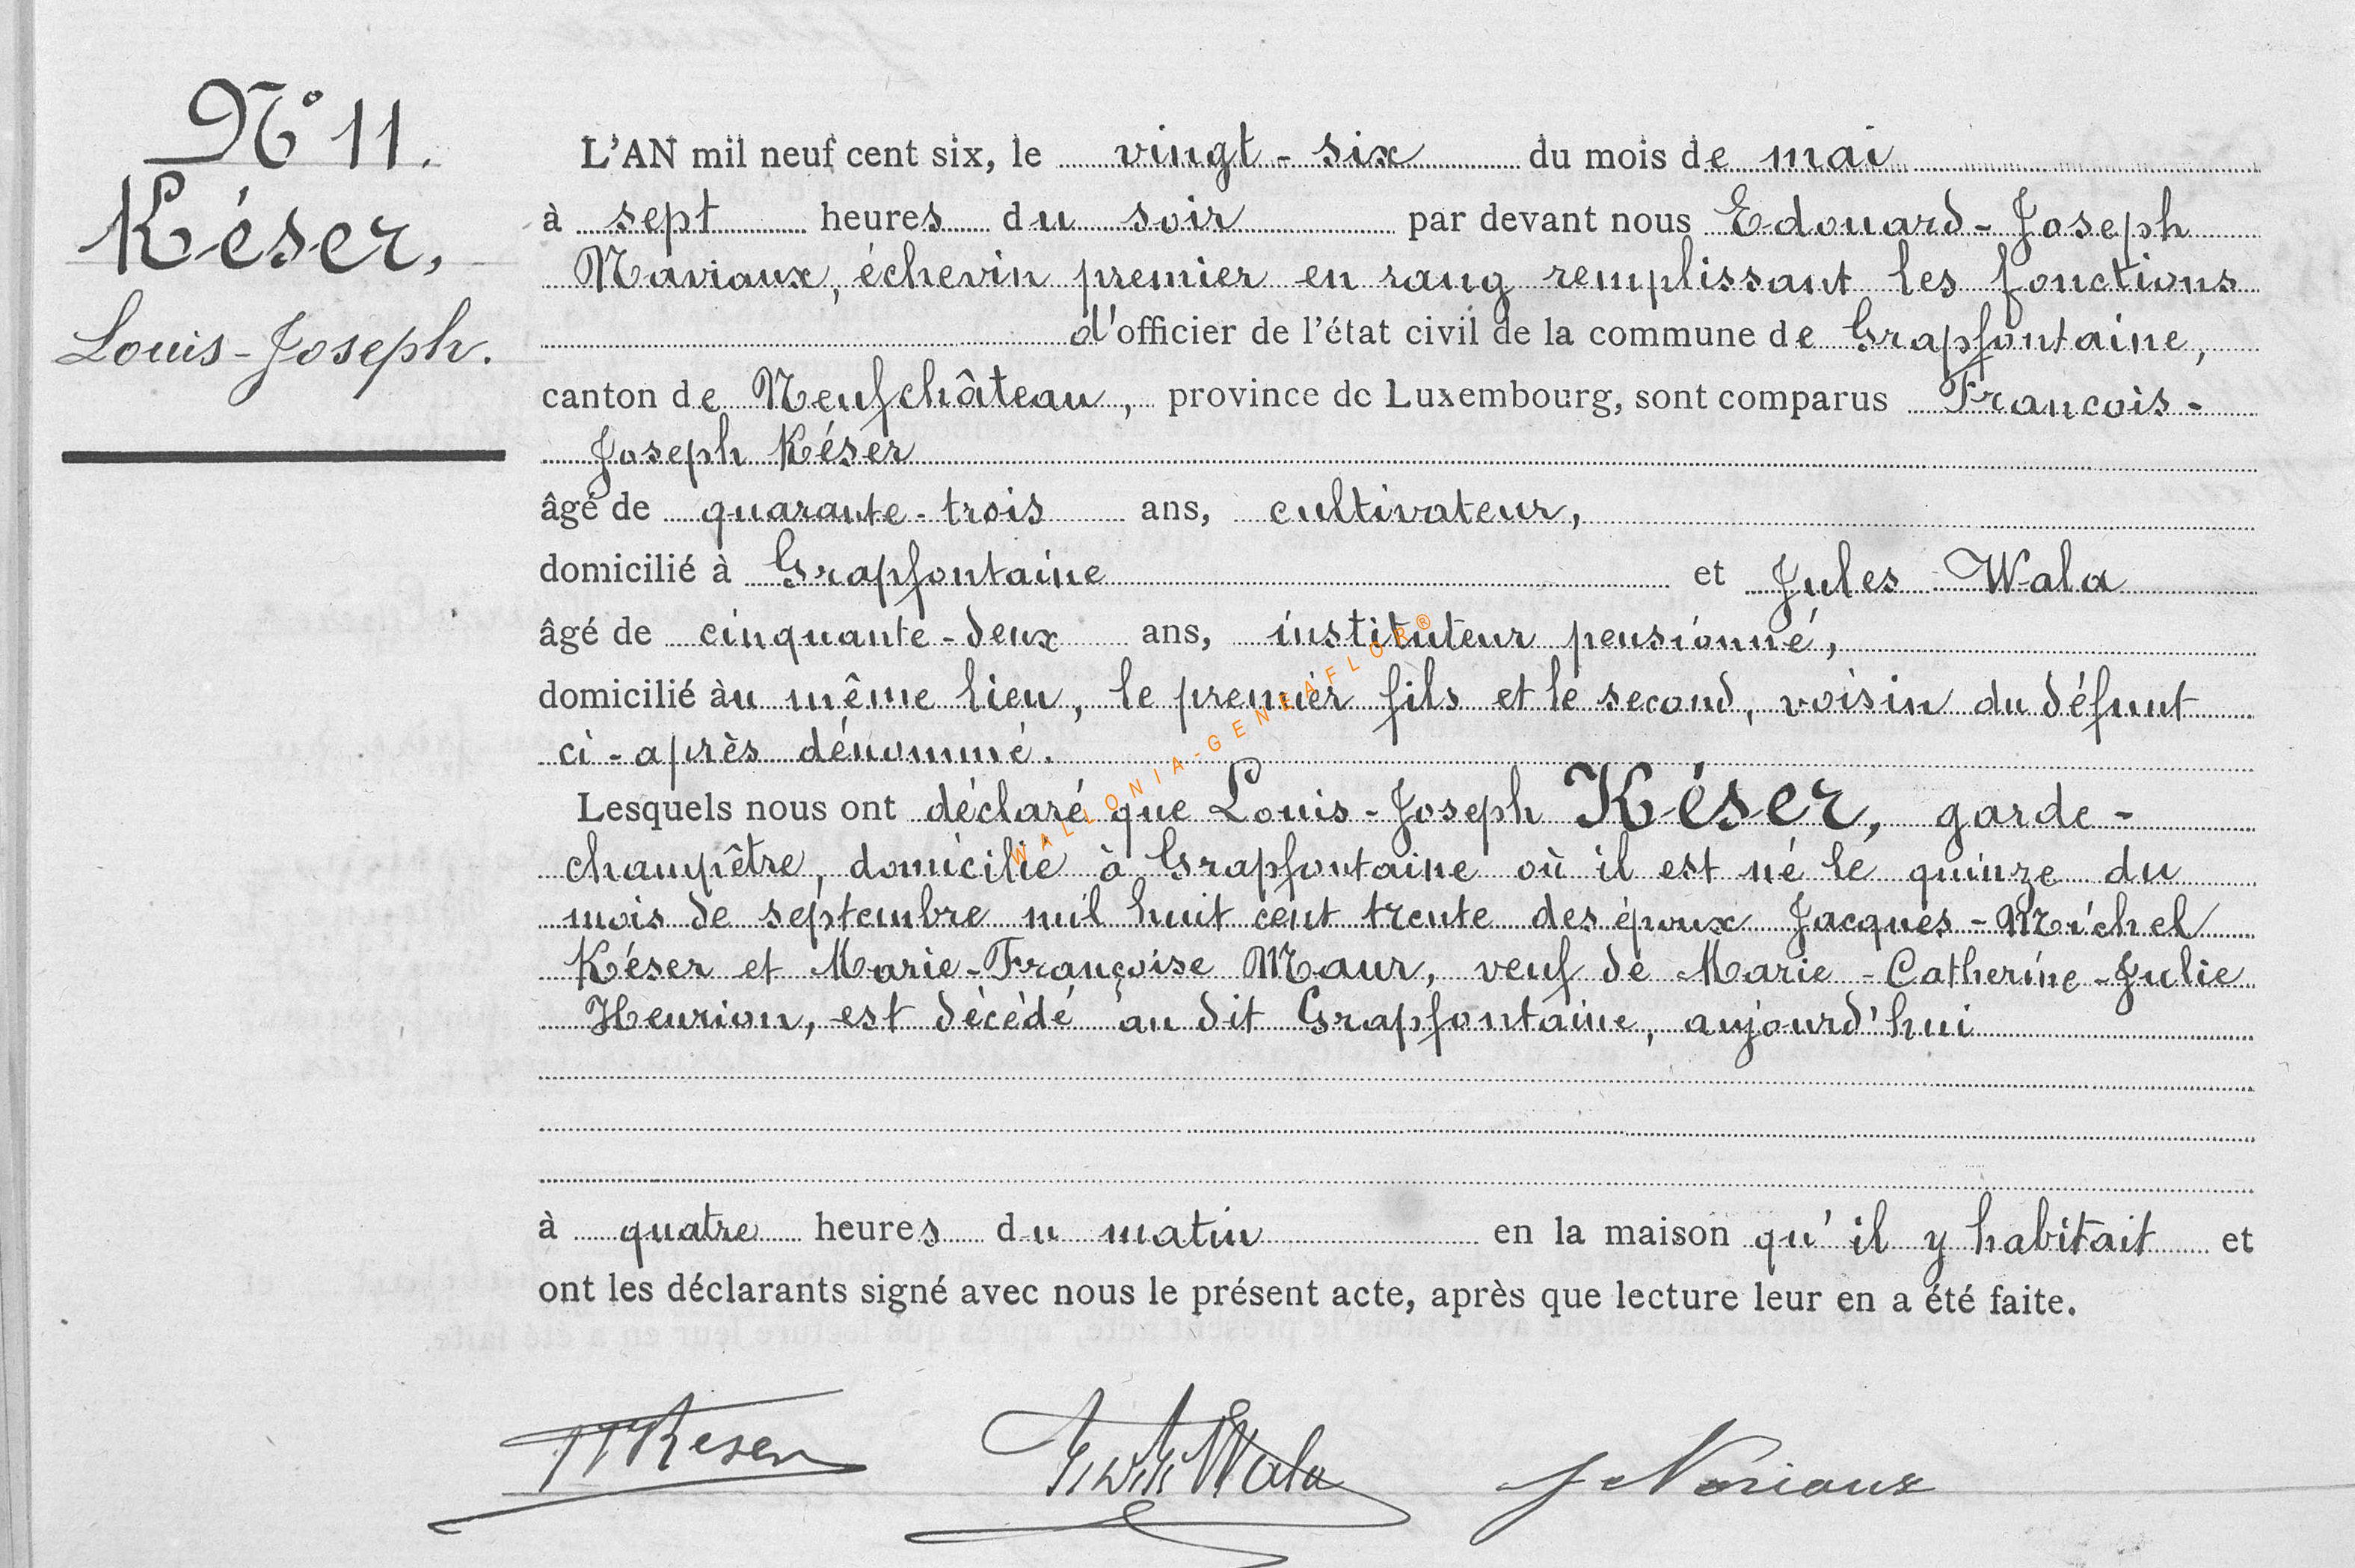 N° 11.
Késer,
Louis-Joseph.
L'AN mil neuf cent six, le vingt-six du mois de mai
à sept heures du soir par devant nous Edouard-Joseph
Naviaux, échevin premier en rang remplissant les fonctions
d'officier de l'état civil de la commune de Grapfontaine,
canton de Neufchâteau, province de Luxembourg, sont comparus Francois-
Joseph Késer
âgé de quarante-trois ans, cultivateur,
domicilié à Grapfontaine et Jules Wala
âgé de cinquante-deux ans, instituteur pensionné,
domicilié àu même lieu, le premier fils et le second, voisin du défunt
ci-après dénommé.
Lesquels nous ont déclaré que Louis-Joseph Késer, garde-
champêtre, domicilié à Grapfontaine où il est né le quinze du
mois de septembre mil huit cent trente des époux Jacques-Michel
Késer et Marie-Françoise Maur, veuf de Marie-Catherine-Julie
Henrion, est décédé au dit Grapfontaine, aujourd'hui
à quatre heures du matin en la maison qu'il y habitait et
ont les déclarants signé avec nous le présent acte, après que lecture leur en a été faite.
Keser Wala Naviaux
WALLONIA-GENEAFLOR®